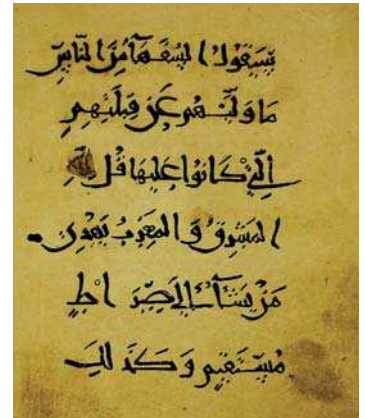 سَيَقُولُ السُّفَهَآءُ مِنَ النَّاسِ
مَا وَلَّىٰهُمْ عَن قِبْلَتِهِمُ
الَّتِي كَانُوا عَلَيْهَا قُل لِّلَّهِ
الْمَشْرِقُ وَالْمَغْرِبُ يَهْدِي
مَن يَشَآءُ إِلَىٰ صِرَاطٍ
مُّسْتَقِيمٍ وَكَذَٰلِكَ